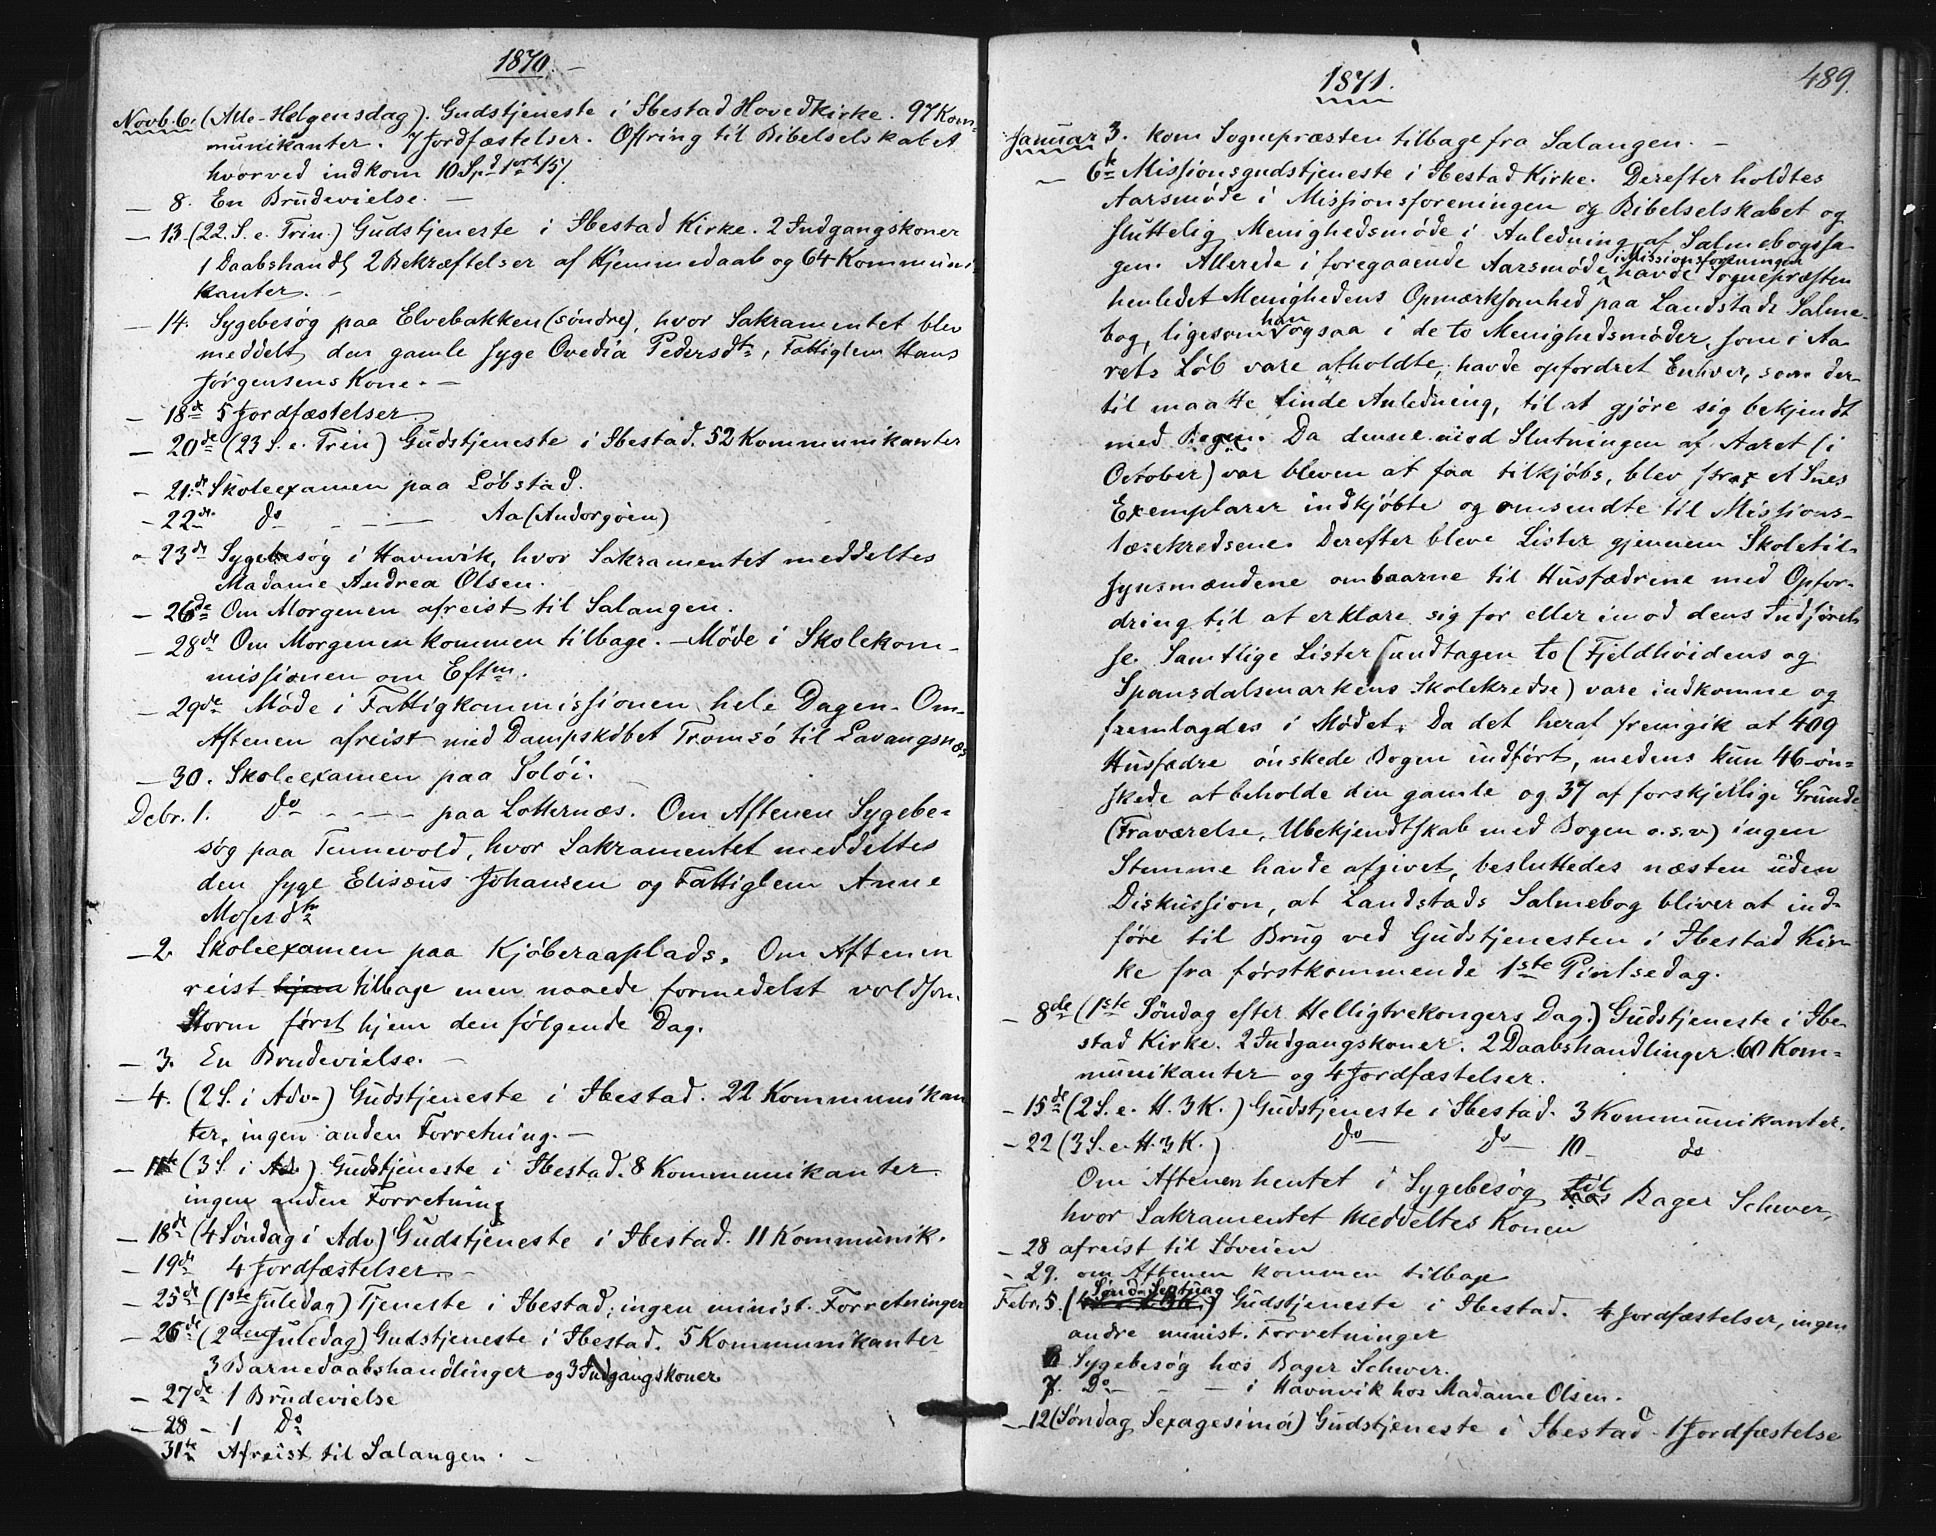 1870. –
Novb. 6. (Alle-Helgensdag). Gudstjeneste i Ibestad Hovedkirke. 97 Kom-
munikanter. 7 Jordfæstelser. Ofring til Bibelselskabet
hvorved indkom 10 Spd 1 ort 15/
– 8. En Brudevielse. –
– 13. (22. S. e. Trin.) Gudstjeneste i Ibestad Kirke. 2 Indgangskoner
1 Daabshandl 2 Bekræftelser af Hjemmedaab og 64 Kommuni
kanter. –
– 14. Sygebesøg paa Elvebakken (søndre), hvor Sakramentet blev
meddelt den gamle syge Ovedia Pedersdtr, Fattiglem Hans
Jørgensens Kone. –
– 18de 5 Jordfæstelser
– 20de (23 S. e. Trin) Gudstjeneste i Ibestad. 52 Kommunikanter
– 21de Skoleexamen paa Løbstad.
– 22de do – – – – Aa (Andorgøen)
– 23de Sygebesøg i Havnvik, hvor Sakramentet meddeltes
Madame Andrea Olsen.
– 26de Om Morgenen afreist til Salangen.
– 28de Om Morgenen kommen tilbage. – Møde i Skolekom-
missionen om Eftm.
– 29de Møde i Fattigkommissionen hele Dagen. Om
Aftenen afreist med Dampskibet Tromsø til Lavangsnæs
– 30. Skoleexamen paa Soløi.
Debr. 1. Do – – – – paa Lotternæs. Om Aftenen Sygebe-
søg paa Tennevold, hvor Sakramentet meddeltes
den syge Elisæus Johansen og Fattiglem Anne
Mosesdtr
– 2 Skoleexamen paa Kjøberaaplads. Om Aftenen
reist hjem tilbage men naaede formedelst voldsom
Storm først hjem den følgende Dag.
– 3. En Brudevielse. –
– 4. (2 S. i Adv.) Gudstjeneste i Ibestad. 22 Kommunikan
ter, ingen anden Forretning. –
– 11te (3 S. i Adv) Gudstjeneste i Ibestad. 8 Kommunikanter.
ingen anden Forretning
– 18de (4 Søndag i Adv) Gudstjeneste i Ibestad. 11 Kommunik.
– 19de 4 Jordfæstelser. –
– 25de (1ste Juledag) Tjeneste i Ibestad; ingen minist. Forretninger
– 26de (2den Juledag) Gudstjeneste i Ibestad. 5 Kommunikanter
3 Barnedaabshandlinger og 3 Indgangskoner
– 27de 1 Brudevielse
– 28 – 1 Do
31te Afreist til Salangen. –
1871.
489.
Januar 3. kom Sognepræsten tilbage fra Salangen. –
– 6te Missionsgudstjeneste i Ibestad Kirke. Derefter holdtes
Aarsmøde i Missionsforeningen og Bibelselskabet og
sluttelig Menighedsmøde i Anledning af Salmebogssa-
gen. Allerede i foregaaende Aarsmøde i Missionsforeningen havde Sognepræsten
henledet Menighedens Opmærksomhed paa Landstads Salme-
bog, ligesom han ogsaa i de to Menighedsmøder, som i Aa-
rets Løb vare afholdte, havde opfordret Enhver, som der-
til maatte finde Anledning, til at gjøre sig bekjendt
med Bogen. Da denne mod Slutningen af Aaret (i
October) var bleven at faa tilkjøbs, blev strax
Exemplarer indkjøbte og omsendte til Missions-
læsekredsene. Derefter bleve Lister gjennem Skoletil-
synsmændene ombaarne til Husfædrene med Opfor-
dring til at erklære sig for eller imod dens Indførel-
se. Samtlige Lister undtagen to (Fjeldhøidens og
Spansdalsmarkens Skolekredse) vare indkomne og
fremlagdes i Mødet. Da det heraf fremgik at 409
Husfædre ønskede Bogen indført, medens kun 46 øn-
skede at beholde den gamle og 37 af forskjellige Grunde
(Fraværelse, Ubekjendtskab med Bogen o.s.v) ingen
Stemme havde afgivet, besluttedes næsten uden
Diskussion, at Landstads Salmebog bliver at ind-
føre til Brug ved Gudstjenesten i Ibestad Kir-
ke fra førstkommende 1ste Pintsedag.
– 8de (1ste Søndag efter Helligtrekongers Dag.) Gudstjeneste i Ibe-
stad Kirke. 2 Indgangskoner. 2 Daabshandlinger. 60 Kom-
munikanter og 4 Jordfæstelser.
– 15de (2 S. e. H. 3 K.) Gudstjeneste i Ibestad. 3 Kommunikanter.
– 22 (3 S. e. H. 3 K.) Do – Do – 10 – do
Om Aftenen hentet i Sygebesøg hos til Bager Schwer,
hvor Sakramentet meddeltes Konen
– 28 afreist til Løveien
– 29. om Aftenen kommen tilbage
Febr. 5. (Sønd. Septuag) Gudstjeneste i Ibestad. 4 Jordfæstelser, ingen
andre minist. Forretninger
6 Sygebesøg hos Bager Schwer.
7. Do – – – i Havnvik hos Madame Olsen.
– 12 (Søndag Sexagesima) Gudstjeneste i Ibestad 1 Jordfæstelse